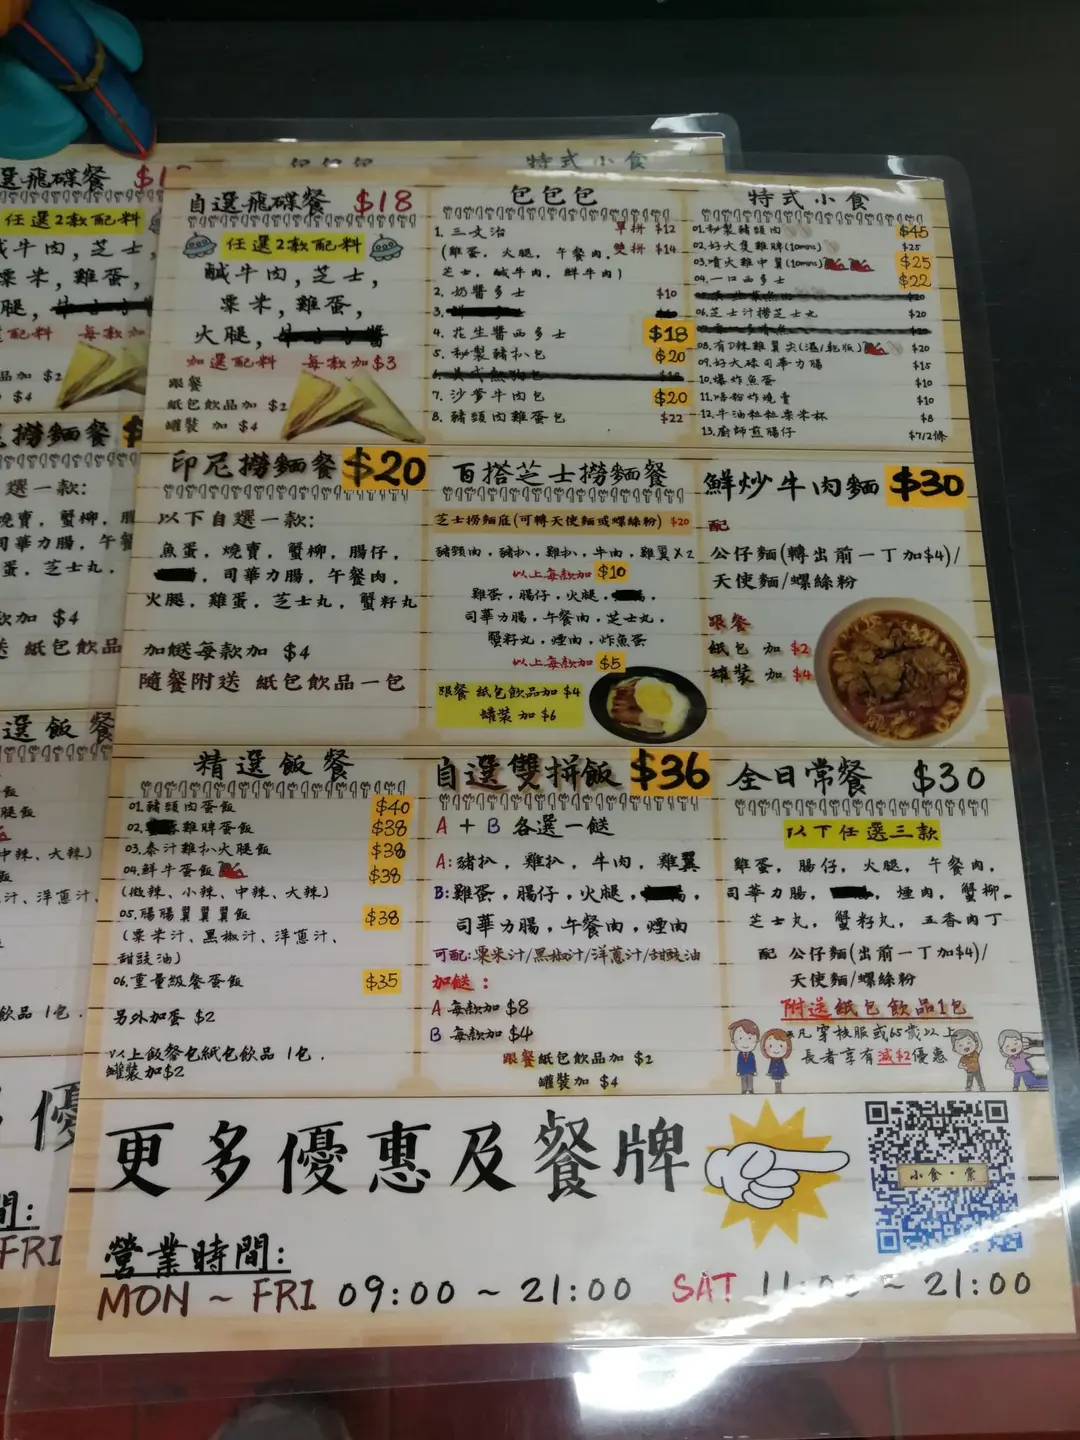 自選飛碟餐 $18
任選2款配料
鹹牛肉，芝士，
粟米，雞蛋，
火腿，
加選配料 每款加$3
跟餐
紙包飲品加 $2
罐裝 加 $4
包包包
1. 三文治 單拼 $12
(雞蛋，火腿，午餐肉， 雙拼 $14
芝士，鹹牛肉，鮮牛肉)
2. 奶醬多士 $10
3.
4. 花生醬西多士 $18
5. 秘製豬扒包 $20
7. 沙爹牛肉包 $20
8. 豬頸肉雞蛋包 $22
特式小食
01.秘製豬頸肉 $45
02.好大隻雞髀(10mins) $25
03.噴火雞中翼(10mins) $25
04.一口西多士 $22
06.芝士汁撈芝士丸 $20
08.有D辣雞翼尖(滷/乾版) $20
09.好大碌司華力腸 $15
10.爆炸魚蛋 $10
11.唔粉炸燒賣 $10
12.牛油粒粒粟米杯 $8
13.廚師煎腸仔 $7/2條
印尼撈麵餐 $20
以下自選一款：
魚蛋，燒賣，蟹柳，腸仔，
，司華力腸，午餐肉，
火腿，雞蛋，芝士丸，蟹籽丸
加餸每款加 $4
隨餐附送 紙包飲品一包
百搭芝士撈麵餐
芝士撈麵底(可轉天使麵或螺絲粉) $20
豬頸肉，豬扒，雞扒，牛肉，雞翼X2
以上每款加 $10
雞蛋，腸仔，火腿，
司華力腸，午餐肉，芝士丸，
蟹籽丸，煙肉，炸魚蛋
以上每款加 $5
跟餐 紙包飲品加 $4
罐裝 加 $6
鮮炒牛肉麵 $30
配
公仔麵(轉出前一丁加$4)/
天使麵/螺絲粉
跟餐
紙包 加 $2
罐裝 加 $4
精選飯餐
01.豬頸肉蛋飯 $40
02. 雞髀蛋飯 $38
03.泰汁雞扒火腿飯 $38
04.鮮牛蛋飯 $38
(微辣、小辣、中辣、大辣)
05.腸腸翼翼翼飯 $38
(粟米汁、黑椒汁、洋蔥汁、
甜豉油)
06.重量級餐蛋飯 $35
另外加蛋 $2
以上飯餐包紙包飲品 1包，
罐裝加$2
自選雙拼飯 $36
A + B 各選一餸
A:豬扒，雞扒，牛肉，雞翼
B:雞蛋，腸仔，火腿， ，
司華力腸，午餐肉，煙肉
可配:粟米汁/黑椒汁/洋蔥汁/甜豉油
加餸：
A 每款加 $8
B 每款加 $4
跟餐紙包飲品加 $2
罐裝 加 $4
全日常餐 $30
以下任選三款
雞蛋，腸仔，火腿，午餐肉，
司華力腸， ，煙肉，蟹柳，
芝士丸，蟹籽丸，五香肉丁
配 公仔麵(出前一丁加$4)/
天使麵/螺絲粉
附送紙包飲品1包
※凡穿校服或65歲以上
長者享有減$2優惠
更多優惠及餐牌
小食·棠
營業時間:
MON ~ FRI 09:00 ~ 21:00 SAT 11:00 ~ 21:00